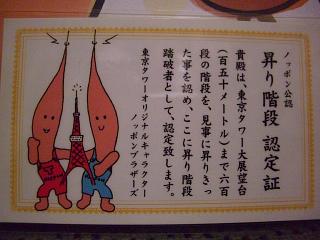 ノッポン公認
昇り階段 認定証
貴殿は、東京タワー大展望台
(百五十メートル)まで六百
段の階段を、見事に昇りきっ
た事を認め、ここに昇り階段
踏破者として、認定致します。
東京タワーオリジナルキャラクター
ノッポンブラザーズ